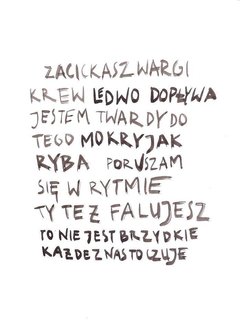 ZACISKASZ WARGI
KREW LEDWO DOPŁYWA
JESTEM TWARDY DO
TEGO MOKRY JAK
RYBA PORUSZAM
SIĘ W RYTMIE
TY TEŻ FALUJESZ
TO NIE JEST BRZYDKIE
KAŻDE Z NAS TO CZUJE